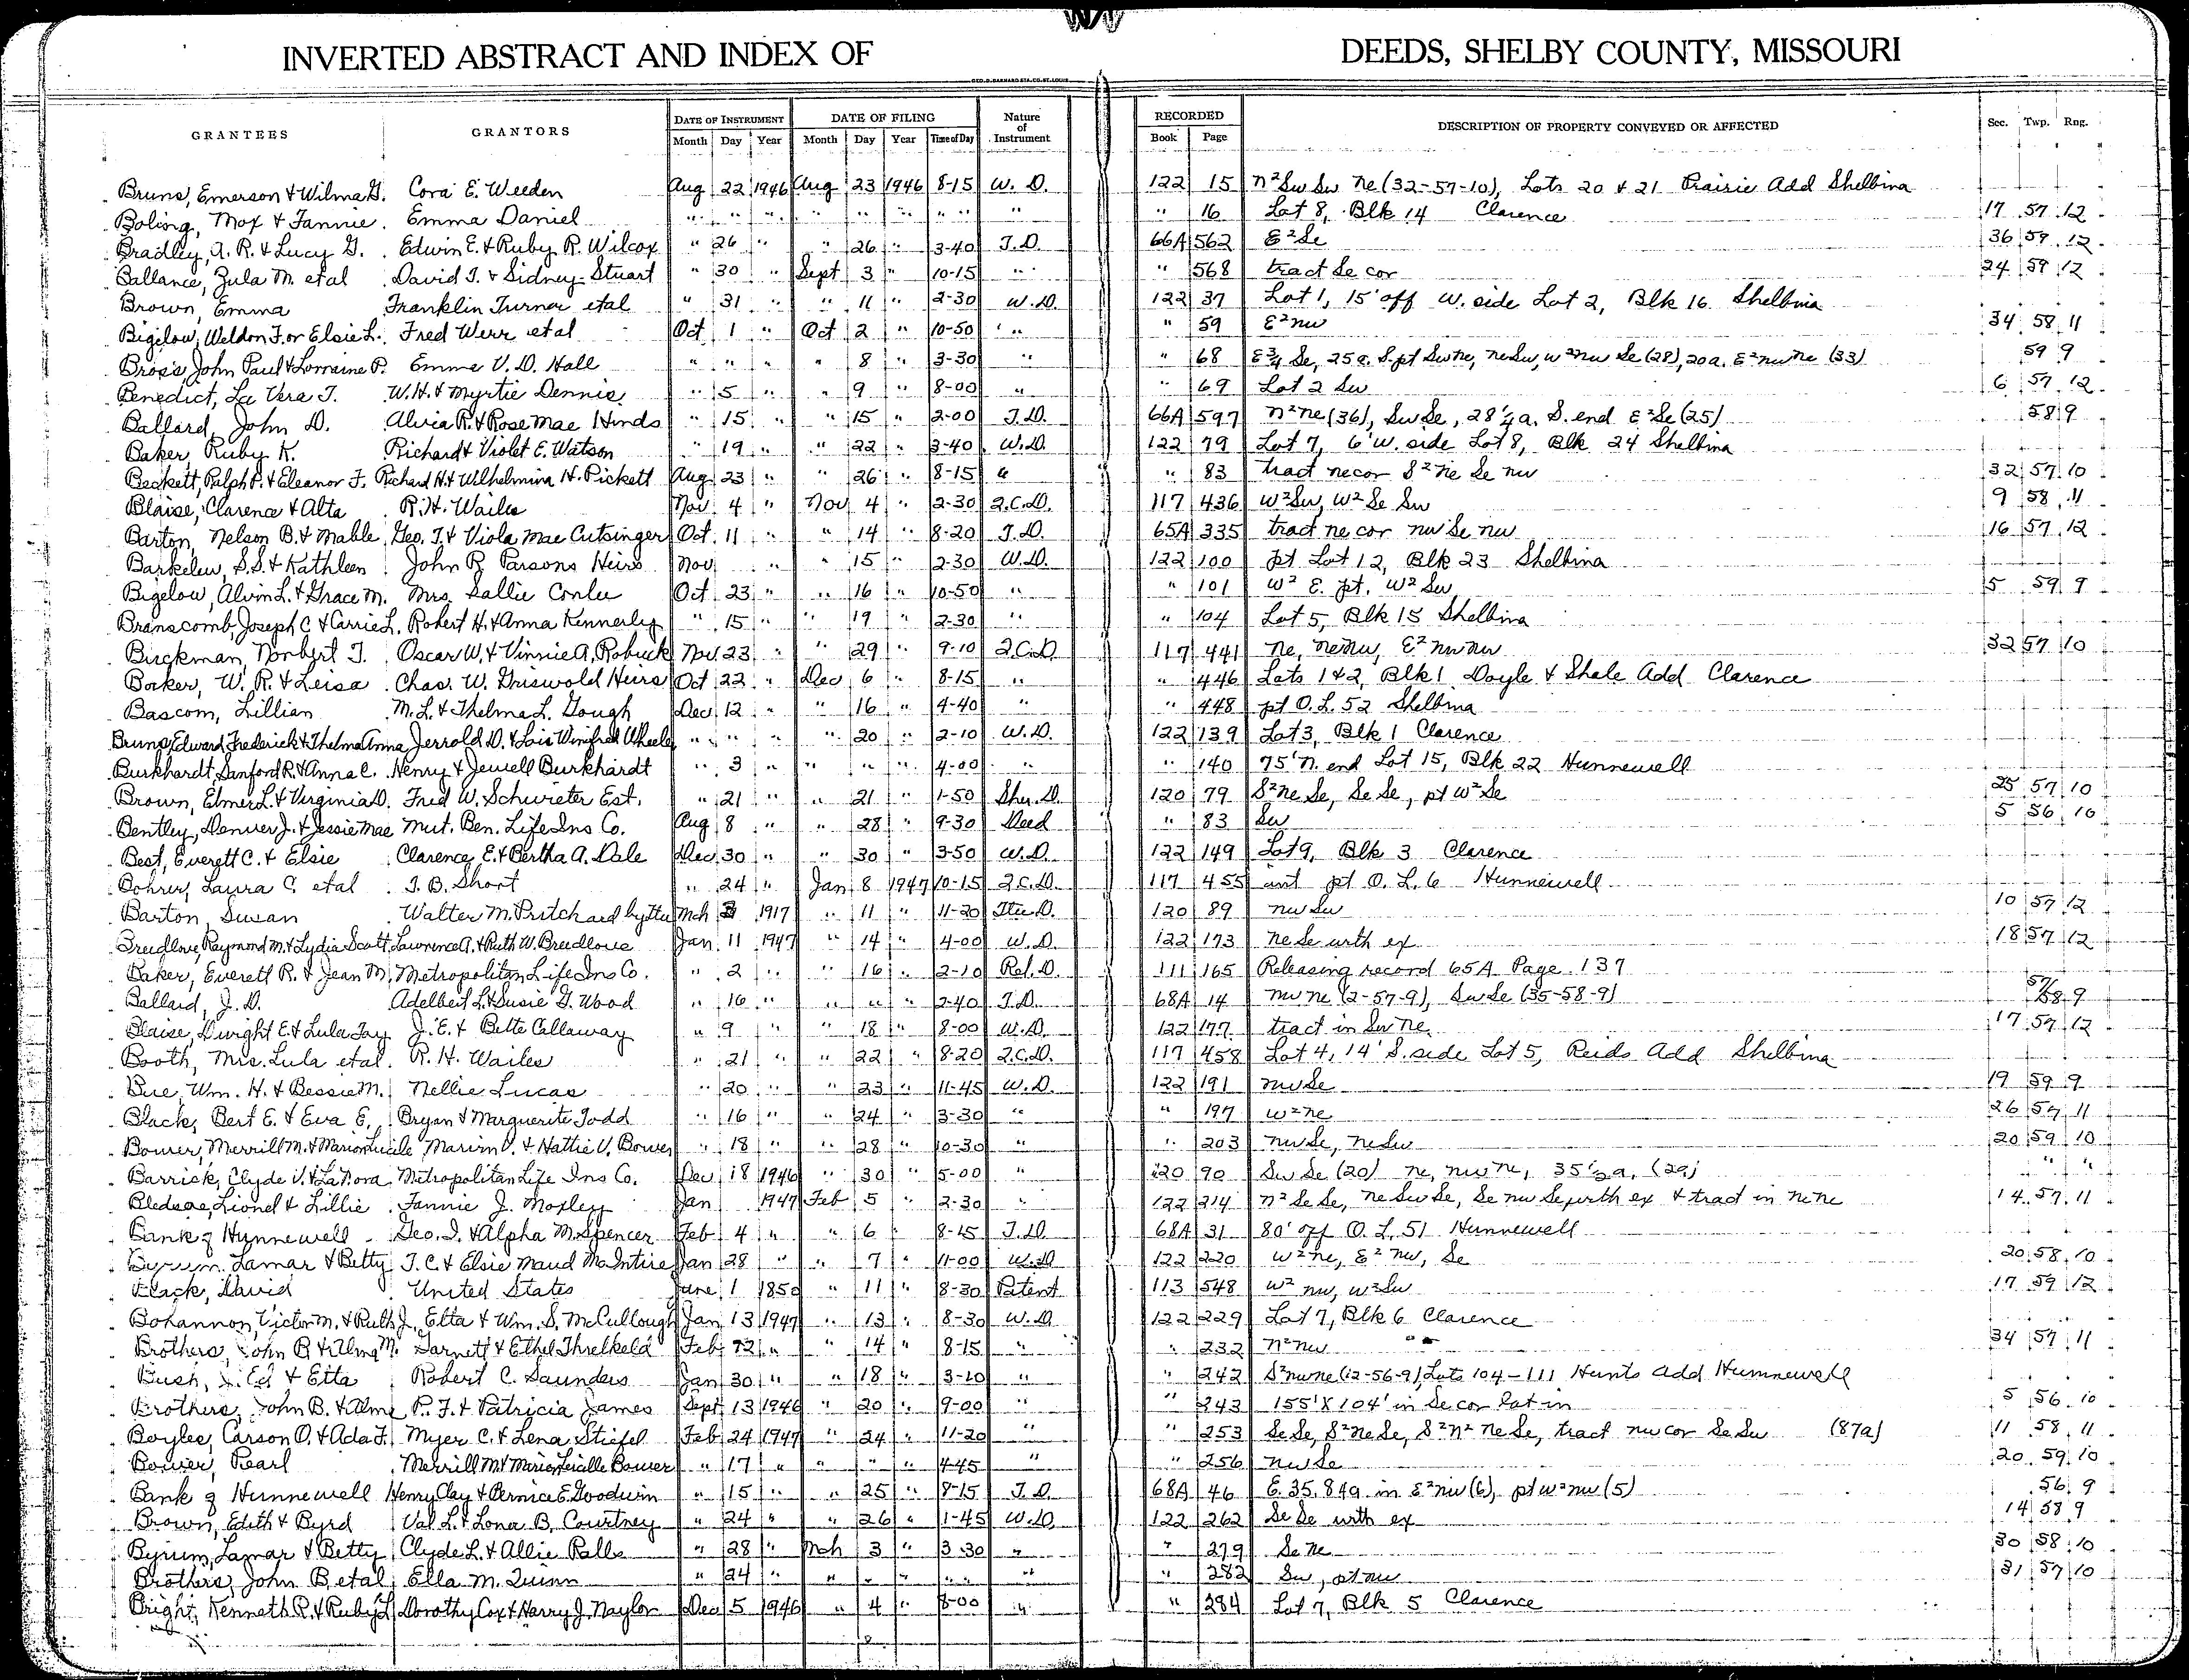 INVERTED ABSTRACT AND INDEX OF DEEDS, SHELBY COUNTY, MISSOURI
GEO. D. BARNARD STA. CO. ST. LOUIS
GRANTEES GRANTORS DATE OF INSTRUMENT DATE OF FILING Nature of Instrument RECORDED DESCRIPTION OF PROPERTY CONVEYED OR AFFECTED Sec. Twp. Rng.
Month Day Year Month Day Year Time of Day Book Page
Bruns, Emerson & Wilma G. Cora E. Weeden Aug 22 1946 Aug 23 1946 8-15 W. D. 122 15 N²Sw Sw Ne (32-57-10), Lots 20 & 21 Prairie Add Shelbina
Boling, Max & Fannie Emma Daniel " " " " " " " " " 16 Lot 8, Blk 14 Clarence 17 57 12
Bradley, A. R. & Lucy G. Edwin E. & Ruby R. Wilcox " 26 " " 26 " 3-40 T.D. 66A 562 E²Se 36 59 12
Ballance, Zula M. etal David T. & Sidney Stuart " 30 " Sept 3 " 10-15 " " 568 tract Se cor 24 59 12
Brown, Emma Franklin Turner etal " 31 " " 11 " 2-30 W.D. 122 37 Lot 1, 15' off W. side Lot 2, Blk 16 Shelbina
Bigelow, Weldon F. or Elsie L. Fred Werr etal Oct 1 " Oct 2 " 10-50 " " 59 E²nw 34 58 11
Bross, John Paul & Lorraine P. Emma V. D. Hall " " " " 8 " 3-30 " " 68 E¾ Se, 25a. S. pt Swne, neSw, w²nw Se (28), 20a. E²nwne (33) 59 9
Benedict, La Vera T. W.H. & Myrtie Dennis " 5 " " 9 " 8-00 " " 69 Lot 2 Sw 6 57 12
Ballard, John D. Alvia R. & Rose Mae Hinds " 15 " " 15 " 2-00 T.D. 66A 597 N²ne (36), SwSe, 28¼a. S. end E²Se (25) 58 9
Baker, Ruby K. Richard & Violet E. Watson " 19 " " 22 " 3-40 W.D. 122 79 Lot 7, 6' W. side Lot 8, Blk 24 Shelbina
Beckett, Ralph P. & Eleanor F. Richard H. & Wilhelmina H. Pickett Aug 23 " " 26 " 8-15 " " 83 tract necor S²ne Se nw 32 57 10
Blaise, Clarence & Alta R. H. Wailes Nov 4 " Nov 4 " 2-30 2.C.D. 117 436 W²Sw, W² Se Sw 9 58 11
Barton, Nelson B. & Mable Geo. T. & Viola Mae Cutsinger Oct 11 " " 14 " 8-20 T.D. 65A 335 tract ne cor nw Se nw 16 57 12
Barkelew, S.S. & Kathleen John R. Parsons Heirs Nov " " 15 " 2-30 W.D. 122 100 pt Lot 12, Blk 23 Shelbina
Bigelow, Alvin L. & Grace M. Mrs. Sallie Conlee Oct 23 " " 16 " 10-50 " " 101 W² E. pt. W² Sw 5 59 9
Branscomb, Joseph C. & Carrie L. Robert H. & Anna Kennerly " 15 " " 19 " 2-30 " " 104 Lot 5, Blk 15 Shelbina
Buckman, Norbert T. Oscar W. & Vinnie A. Robuck Nov 23 " " 29 " 9-10 2.C.D. 117 441 Ne, nenw, E² nwnw 32 57 10
Baker, W. R. & Leisa Chas. W. Griswold Heirs Oct 22 " Dec 6 " 8-15 " " 446 Lots 1 & 2, Blk 1 Doyle & Shale Add Clarence
Bascom, Lillian M. L. & Thelma L. Gough Dec 12 " " 16 " 4-40 " " 448 pt O.L. 52 Shelbina
Bruns, Edward Frederick & Thelma Anna Jerrold D. & Lois Winifred Wheeler " " " " 20 " 2-10 W.D. 122 139 Lot 3, Blk 1 Clarence
Burkhardt, Sanford R. & Anna C. Henry & Jewell Burkhardt " 3 " " " " 4-00 " " 140 75' N. end Lot 15, Blk 22 Hunnewell
Brown, Elmer L. & Virginia D. Fred W. Schwieter Est. " 21 " " 21 " 1-50 Sher. D. 120 79 S²ne Se, Se Se, pt W²Se 25 57 10
Bentley, Denver J. & Jessie Mae Mut. Ben. Life Ins Co. Aug 8 " " 28 " 9-30 Deed " 83 Sw 5 56 10
Best, Everett C. & Elsie Clarence E. & Bertha A. Dale Dec 30 " " 30 " 3-50 W.D. 122 149 Lot 9, Blk 3 Clarence
Bohrer, Laura C. etal T. B. Short " 24 " Jan 8 1947 10-15 2.C.D. 117 455 int pt O. L. 6 Hunnewell
Barton, Susan Walter M. Pritchard by Ttu Mch 3 1917 " 11 " 11-20 Ttu D. 120 89 nwSw 10 57 12
Breedlove, Raymond M. & Lydia Scott Lawrence A. & Ruth W. Breedlove Jan 11 1947 " 14 " 4-00 W.D. 122 173 NeSe with ex 18 57 12
Baker, Everett R. & Jean M. Metropolitan Life Ins Co. " 2 " " 16 " 2-10 Rel. D. 111 165 Releasing record 65A Page 137
Ballard, J. D. Adelbert L. & Susie G. Wood " 16 " " " " 2-40 T.D. 68A 14 nwne (2-57-9), SwSe (35-58-9) 57/58 9
Blaise, Dwight E. & Lula Fay J. E. & Bette Callaway " 9 " " 18 " 8-00 W.D. 122 177 tract in Sw Ne 17 57 12
Booth, Mrs. Lula etal R. H. Wailes " 21 " " 22 " 8-20 2.C.D. 117 458 Lot 4, 14' S. side Lot 5, Reids Add Shelbina
Bue, Wm. H. & Bessie M. Nellie Lucas " 20 " " 23 " 11-45 W.D. 122 191 nwSe 19 59 9
Black, Bert E. & Eva E. Bryan & Marguerite Todd " 16 " " 24 " 3-30 " " 197 W²ne 26 57 11
Bower, Merrill M. & Marion Lucile Marvin O. & Hattie V. Bower " 18 " " 28 " 10-30 " " 203 nwSe, neSw 20 59 10
Barrick, Clyde V. & LaNora Metropolitan Life Ins Co. Dec 18 1946 " 30 " 5-00 " 120 90 Sw Se (20) ne, nwne, 35½a. (29) " "
Bledsoe, Lionel & Lillie Fannie J. Mosley Jan 1947 Feb 5 " 2-30 " 122 214 N² SeSe, neSwSe, Se nw Se, with ex & tract in nene 14 57 11
Bank of Hunnewell Geo. I. & Alpha M. Spencer Feb 4 " " 6 " 8-15 T.D. 68A 31 80' off O. L. 51 Hunnewell
Byrum, Lamar & Betty T. C. & Elsie Maud McIntire Jan 28 " " 7 " 11-00 W.D. 122 220 W²ne, E² nw, Se 20 58 10
Black, David United States June 1 1850 " 11 " 8-30 Patent 113 548 W² nw, w²Sw 17 59 12
Bohannon, Victor M. & Ruth J. Etta & Wm. S. McCullough Jan 13 1947 " 13 " 8-30 W.D. 122 229 Lot 7, Blk 6 Clarence
Brothers, John B. & Alma M. Garnett & Ethel Threlkeld Feb 12 " " 14 " 8-15 " " 232 N²nw 34 57 11
Bush, & Etta Robert C. Saunders Jan 30 " " 18 " 3-10 " " 242 S²nwne (12-56-9), Lots 104-111 Hunts Add Hunnewell
Brothers, John B. & Alma P. F. & Patricia James Sept 13 1946 " 20 " 9-00 " " 243 155' X 104' in Se cor lot in 5 56 10
Boyles, Carson O. & Ada F. Myer C. & Lena Stiefel Feb 24 1947 " 24 " 11-20 " " 253 SeSe, S²NeSe, S²N² NeSe, tract nw cor Se Sw (87a) 11 58 11
Bower, Pearl Merrill M. & Marion Lucille Bower " 17 " " " " 4-45 " " 256 nwSe 20 59 10
Bank of Hunnewell Henry Clay & Bernice E. Goodwin " 15 " " 25 " 8-15 T.D. 68A 46 E. 35.84a in E²nw (6), pt w²nw (5) 56 9
Brown, Edith & Byrd Val L. & Lona B. Courtney " 24 " " 26 " 1-45 W.D. 122 262 Se Se with ex 14 58 9
Byrum, Lamar & Betty Clyde L. & Allie Ralls " 28 " Mch 3 " 3-30 " " 279 Se Ne 30 58 10
Brothers, John B. etal Ella M. Quinn " 24 " " " " " " " 282 Sw, pt nw 31 57 10
Bright, Kenneth R. & Ruby L. Dorothy Cox & Harry J. Naylor Dec 5 1946 " 4 " 8-00 " " 284 Lot 7, Blk 5 Clarence